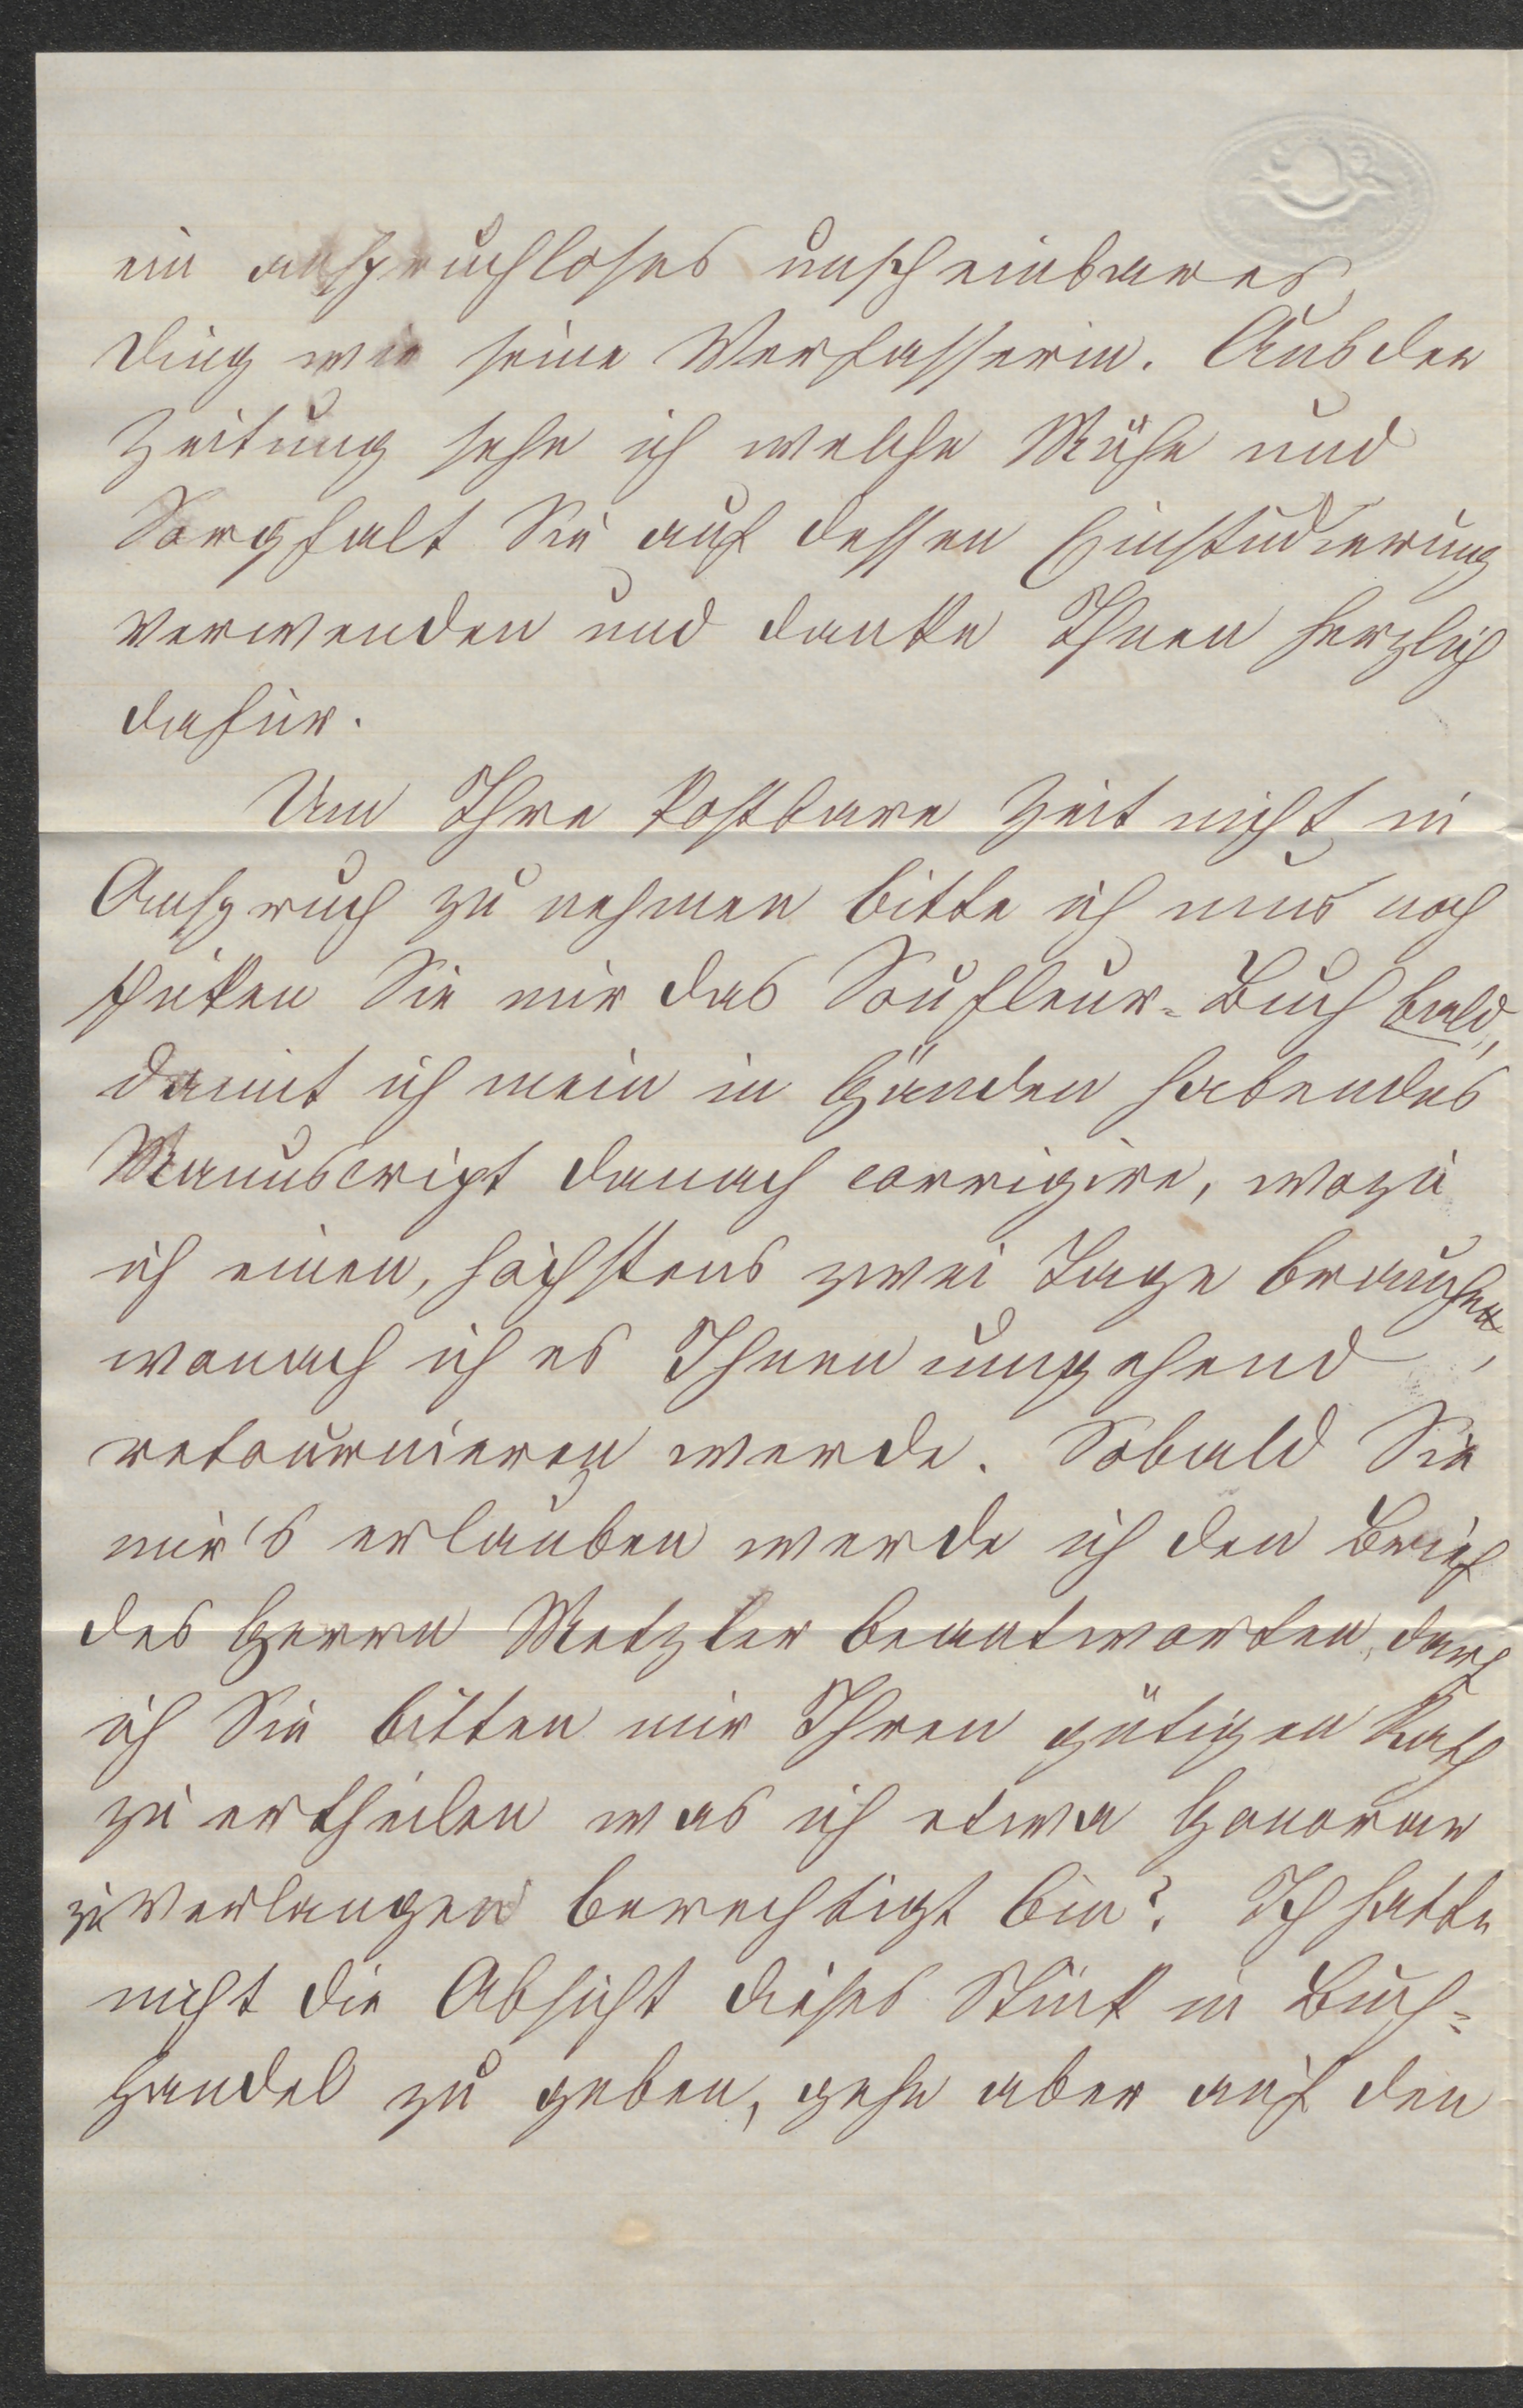 ein anspruchloses unscheinbares
Ding wie seine Verfasserin. Aus der
Zeitung sehe ich welche Mühe und
Sorgfalt Sie auf dessen Einstudierung
verwenden und danke Ihnen herzlich
dafür.
Um Ihre kostbare Zeit nicht in
Anspruch zu nehmen bitte ich nur noch
schicken Sie mir das Soufleur-Buch bald,
damit ich mein in Händen habendes
Manuscript danach corrigire, wozu
ich einen, höchstens zwei Tage brauchen,
wonach ich es Ihnen umgehend
retournieren werde. Sobald Sie
mir's erlauben werde ich den Brief
des Herrn Metzler beantworten, darf
ich Sie bitten mir Ihren gütigen Rath
zu ertheilen was ich etwa Honorar
zu verlangen berechtigt bin? Ich hatte
nicht die Absicht dieses Stück in Buch=
handel zu geben, gehe aber auf den